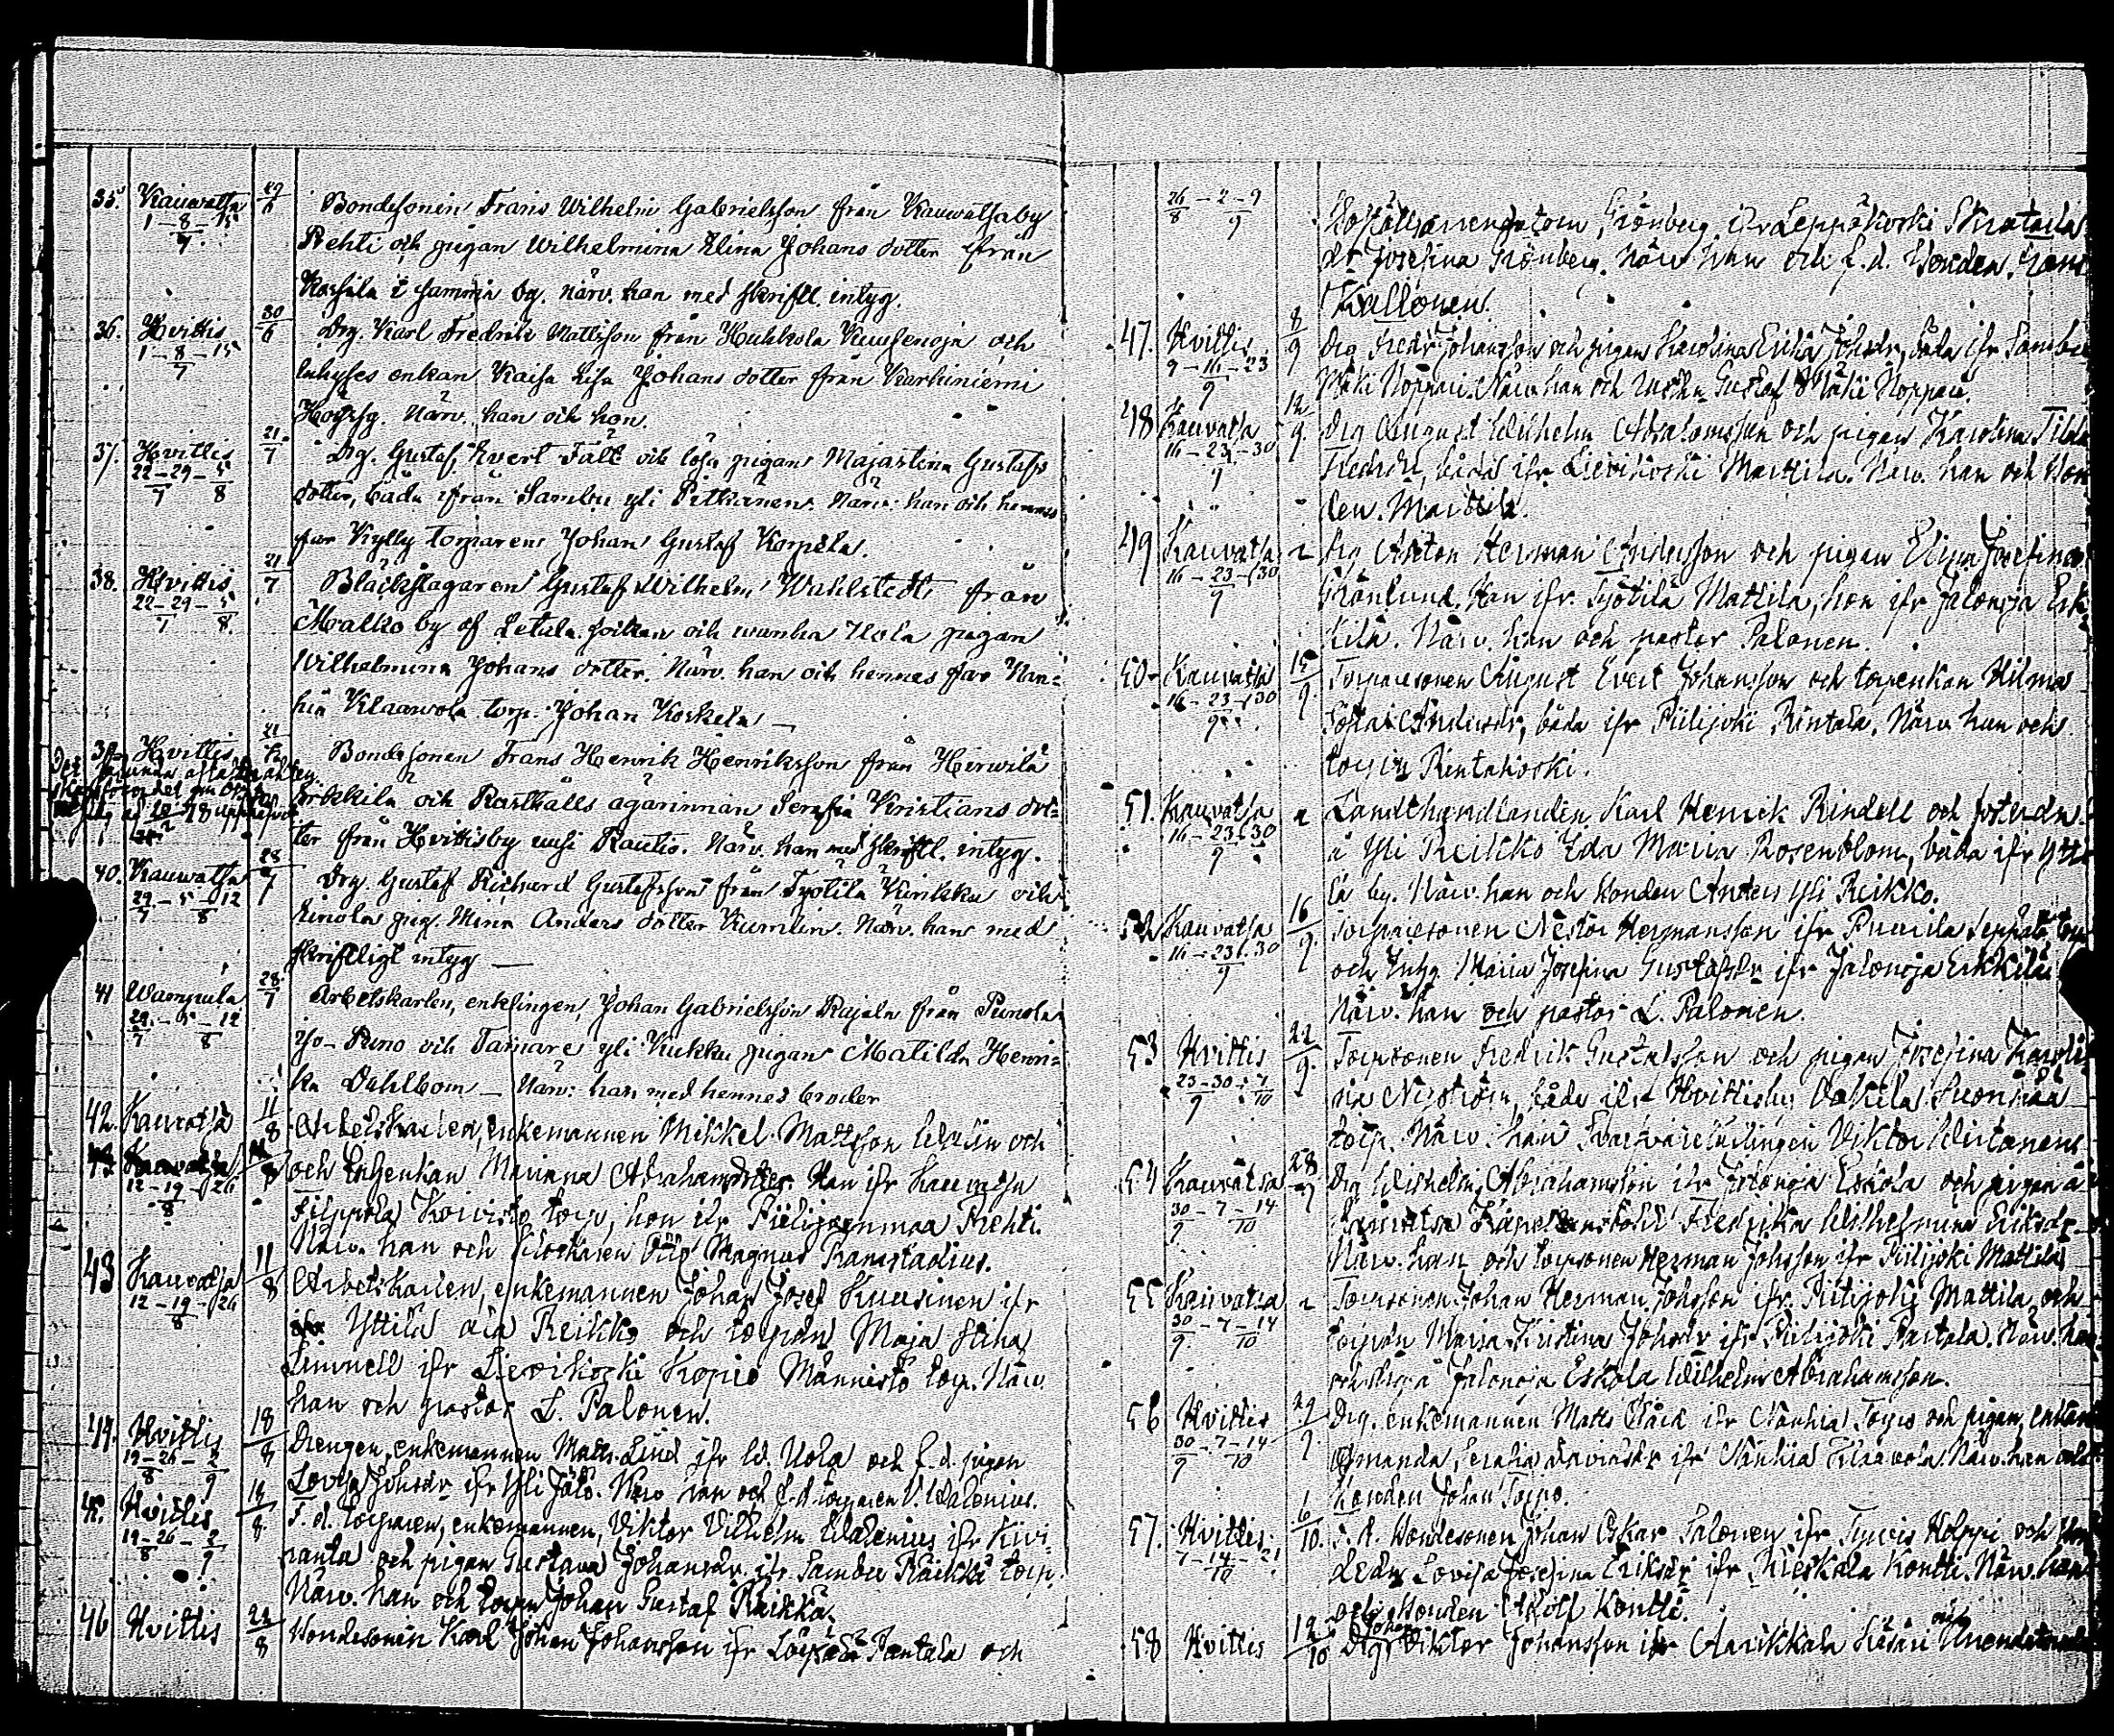 35. Kauvatsa 29/6 Bondesonen Frans Wilhelm Gabrielsson från Kauvatsaby
1–8–15/7 Rehti och pigan Wilhelmina Elina Johans dotter från
i samma by. närv. han med skriftl. intyg.
36. Hvittis 30/6 Drg. Karl Fredrik Mattsson från Huhkola Kuusenoja och
1–8–15/7 inhyses enkan Kaisa Lisa Johans dotter från Karhiniemi
närv. han och hon.
37. Hvittis 21/7 Drg. Gustaf Evert Fält och lösa pigan Majastina Gustafs
22–29/7–5/8 dotter, båda ifrån Sambu yli Pitkänen. Närv. han och hennes
far Kylly torparen Johan Gustaf Korpela.
38. Hvittis 21/7 Bläckslagaren Gustaf Wilhelm Wahlstedt från
22–29/7–5/8 Malko by af Letala socken och wanha Uola pigan
Wilhelmina Johans dotter. Närv. han och hennes far Nan-
hia Klaawola torp. Johan Koskela —
39. Hvittis 21/7 Bondesonen Frans Henrik Henriksson från Herwilä
Erkkilä och Rusthålls ägarinnan Serafia Kristians dot-
ter från Hvittisby uusi Rautio. Närv. han med skriftl. intyg.
40. Kauwatsa 28/7 Drg. Gustaf Richard Gustafsson från Työtilä Kirikka och
29/7–5–12/8 pig. Mina Anders dotter Kumlin. Närv. han med
skriftligt intyg —
41 Wampula 28/7 Arbetskarlen, enklingen, Johan Gabrielsson Rajala från Punola
29/7–5–12/8 Yo-Puno och Tamare yli Kukku pigan Matilda Henri-
ka Dahlbom — Närv: han med hennes broder
42. Kauvatsa 11/8 Arbetskarlen, enkemannen Mikkel Mattsson Walin och
12–19–26/8 och Inhenkan Mariana Abrahamsdotter. Han ifr Kauvatsa
Filppola Koivisto torp, hon ifr Piilijoenmaa Rehti.
Närv. han och klockaren Filip Magnus Ramstadius.
43 Kauvatsa 11/8 Arbetskarlen, enkemannen Johan Josef Kuusinen ifr
12–19–26/8 Yttilä ala Reikko och torpdn Maja Stina
Linnell ifr Lievikoski Kopio Männistö torp. Närv.
han och pastor L. Palonen.
44. Hvittis 18/8 Drengen, enkemannen Matts Lind ifr W. Uola och f.d. pigan
19–26/8–2/9 Lovisa Johsdr ifr Yli Jalo. Närv han och f.d torparen V. Walenius.
45. Hvittis 19/8 F. d. torparen, enkemannen, Viktor Vilhelm Walenius ifr Kivi-
19–26/8–2/9 ranta och pigan Gustava Johansdr ifr Sambu Räikkä torp.
Närv. han och torpn Johan Gustaf Räikkä.
46 Hvittis 22/8 Bondesonen Karl Johan Johansson ifr Tantala och
26/8–2–9/9 Grönberg ifr Leppäkoski Skratarla
dr Josefina Grönberg. Närv han och f. d. bonden
Kallonen.
47. Hvittis 8/9 Drg Fredr Johansson och pigan Karolina Erika Johsdr, båda ifr Sambu
9–16–23/9 Mäki Noppari. Närv. han och Gustaf Mäki Noppari.
48 Kauvatsa 12/9 Drg August Wilhelm Abrahamsson och pigan Karolina Tilda
16–23–30/9 Fredrdr, båda ifr Lievikoski Marttila. Närv. han och bon
den Marttila.
49 Kauvatsa Drg Anton Herman Andersson och pigan Elina Josefina
16–23–30/9 Grönlund. Han ifr. Työtilä Mattila, hon ifr Jalonoja Erk
kilä. Närv. han och pastor Palonen.
50 Kauvatsa 15/9 Torparesonen August Evert Johansson och torpenkan Hilma
16–23–30/9 Sofia Andersdr, båda ifr Piilijoki Rintala. Närv han och
torpn Rintakoski.
51. Kauvatsa Landthandlanden Karl Henrik Rindell och fosterdn
16–23–30/9 å Yli Reikko Ida Maria Rosenblom, båda ifr Ytti
lä by. Närv. han och bonden Anders Yli Reikko.
52 Kauvatsa 16/9 Torparesonen Nestor Hermansson ifr Puurila Seppälä torp
16–23–30/9 och Inhg. Maria Josefina Gustafsdr ifr Jalonoja Erkkilä
Närv. han och pastor L. Palonen.
53 Hvittis 22/9 Torpsonen Fredrik Gustafsson och pigan Josefina Karoli-
23–30/9–7/10 na Nyström, båda ifr Hvittisby Vakila Suonpää
torp. Närv. han Viktor Wirtanen
54 Kauvatsa 28/9 Drg Wilhelm Abrahamsson ifr Jalonoja Eskola och pigan å
30/9–7–14/10 Kauvatsa Kapellansbohl Fredrika Wilhelmina Eriksdr
Närv. han och torpsonen Herman Johsson ifr Piilijoki Mattila
55 Kauvatsa Torpsonen Johan Herman Johsson ifr. Piilijoki Mattila och
30/9–7–14/10 torpdn Maria Kristina Johsdr ifr Piilijoki Partala. Närv. han
och drg å Jalonoja Eskola Wilhelm Abrahamsson.
56 Hvittis 29/9 Drg. enkemannen Matts ifr Nanhia Torpo och pigan, enkan
30/9–7–14/10 Amanda Serafia Davidsdr ifr Nanhia Klaavola. Närv. han och
bonden Johan Torpo.
57. Hvittis 6/10 F. d. bondesonen Johan Oskar Salonen ifr Hölppi och
7–14–21/10 Lovisa Josefina Eriksdr ifr Rieskala Kontti. Närv. han
och bonden Adolf Kontti.
58 Hvittis 12/10 Drg Johan Viktor Johansson ifr Aarikkala och